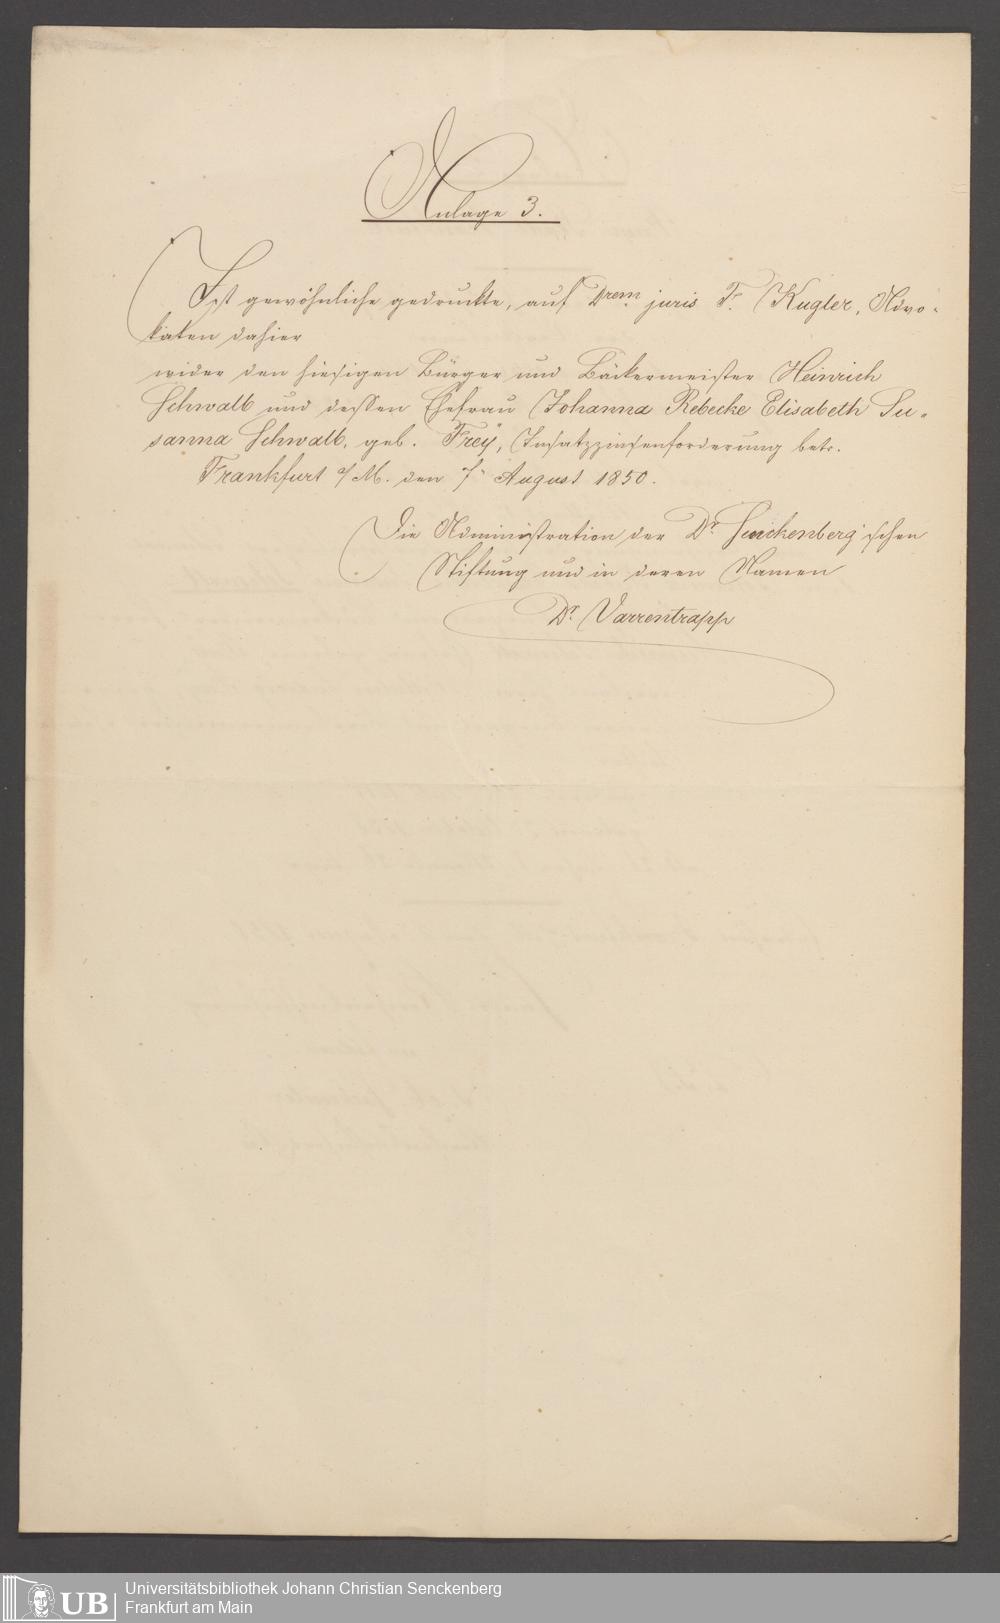 Anlage 3.
Ist gewöhnliche gedruckte, auf Drem juris F. Kugler, Advo-
katen dahier
wider den hiesigen Bürger und Bäckermeister Heinrich
Schwalb und dessen Ehefrau Johanna Rebecke Elisabeth Su-
sanna Schwalb, geb. Frey, Insatzzinsenforderung betr.
Frankfurt a/M. den 7 August 1850.
Die Administration der Dr. Senckenberg'schen
Stiftung und in deren Namen
Dr. Varrentrapp
UB
Universitätsbibliothek Johann Christian Senckenberg
Frankfurt am Main